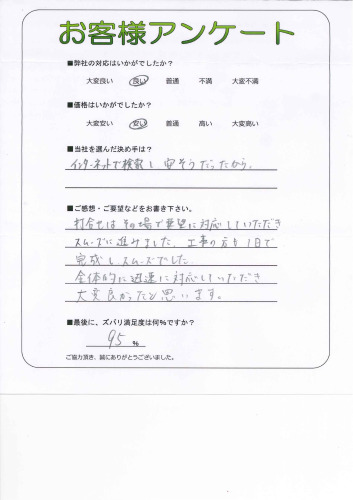 お客様アンケート
■弊社の対応はいかがでしたか？
大変良い 良い 普通 不満 大変不満
■価格はいかがでしたか？
大変安い 安い 普通 高い 大変高い
■当社を選んだ決め手は？
インターネットで検索し安そうだったから。
■ご感想・ご要望などをお書き下さい。
打合せはその場で要望に対応していただき
スムーズに進みました。工事の方も1日で
完成しスムーズでした。
全体的に迅速に対応していただき
大変良かったと思います。
■最後に、ズバリ満足度は何%ですか？
95 %
ご協力頂き、誠にありがとうございました。